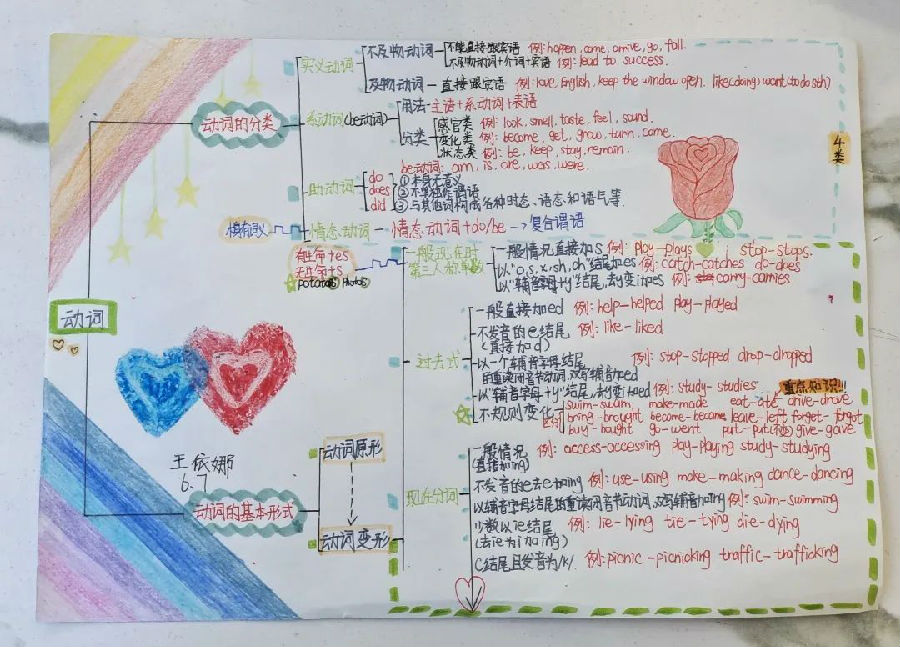 实义动词
不及物动词
不能直接跟宾语 例: happen, come, arrive, go, fall.
不及物动词+介词+宾语 例: lead to success.
及物动词 — 直接跟宾语 例: love, English, keep the window open. like(doing) want(to do sth)
动词的分类
系动词(be动词)
用法 — 主语+系动词+表语
分类
感官类 例: look, smell, taste, feel, sound.
变化类 例: become, get, grow, turn, come.
状态类 例: be, keep, stay, remain.
4类
be动词: am. is. are. was. were.
助动词
do
does
did
① 本身无意义
② 不单独作谓语
③ 与其他词构成各种时态、语态和语气等
情态动词 — 情态动词+do/be → 复合谓语
有生命+es
无生命+s
potatoes photos
一般现在时
第三人称单数
一般情况直接加s 例: play-plays stop-stops.
以"o,s,x,sh,ch"结尾加es 例: catch-catches do-does
以"辅音字母+y"结尾,去y变i加es 例: carry-carries
动词
过去式
一般直接加ed 例: help-helped play-played
不发音的e结尾 例: like-liked
(直接加d)
以一个辅音字母结尾 例: stop-stopped drop-dropped
的重读闭音节动词,双写辅音加ed
以"辅音字母+y"结尾,去y变i加ed 例: study-studies
重点知识!!!
不规则变化
swim-swam make-made eat-ate drive-drove
bring-brought become-became leave-left forget-forgot
buy-bought go-went put-put give-gave
王依娜
6.7
动词原形
动词的基本形式
动词变形
现在分词
一般情况 例: access-accessing play-playing study-studying
(直接加ing)
不发音的e去e加ing 例: use-using make-making dance-dancing
以辅音字母结尾的重读闭音节动词,双写辅音加ing 例: swim-swimming
少数以ie结尾 例: lie-lying tie-tying die-dying
(去ie为y加ing)
C结尾且发音为/k/ 例: picnic-picnicking traffic-trafficking